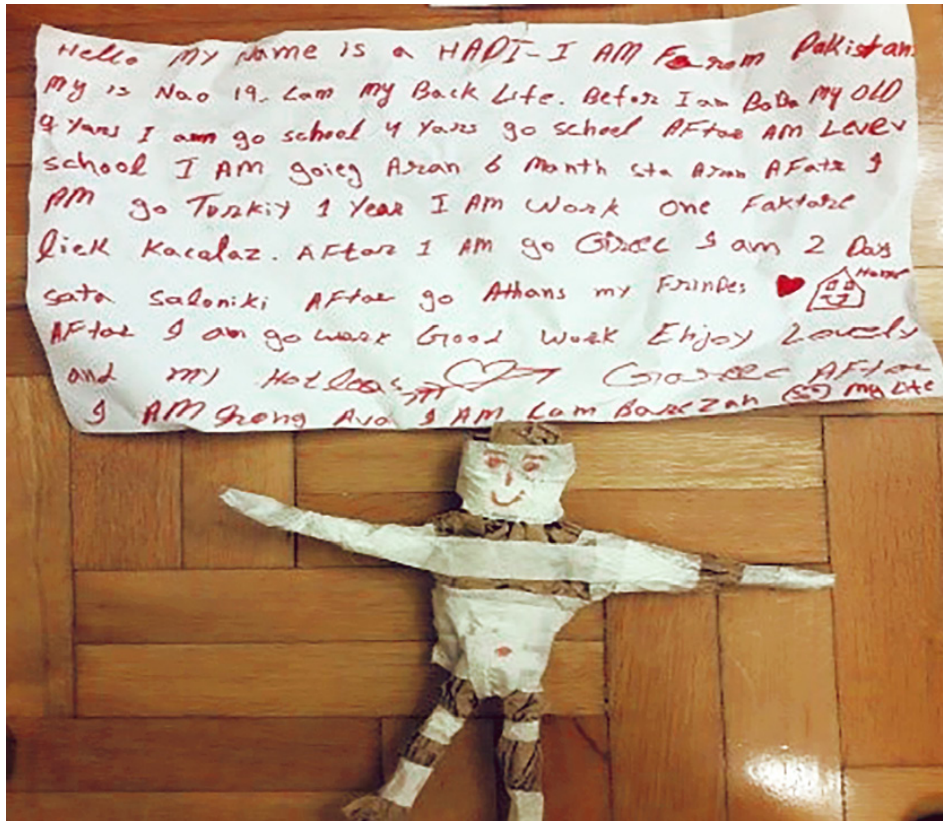 Hello My Name is a HADI-I AM Farom Pakistan
My is Nao 19. Lam My Back Life. Befor I am BoBa My OLD
9 Yans I am go school 4 Yars go school AFtar AM Lever
school I AM goieg Aran 6 Month sta Aran AFatr I
AM go Turkiy 1 Year I AM work one Faktare
liek Kacalaz. AFtar I AM go Gireec I am 2 Days
sata saloniki AFtar go Athans my Frindes Home
AFtar I am go work Good work Enjoy Lovely
and my Gareec AFtar
I AM I AM Lam My Life